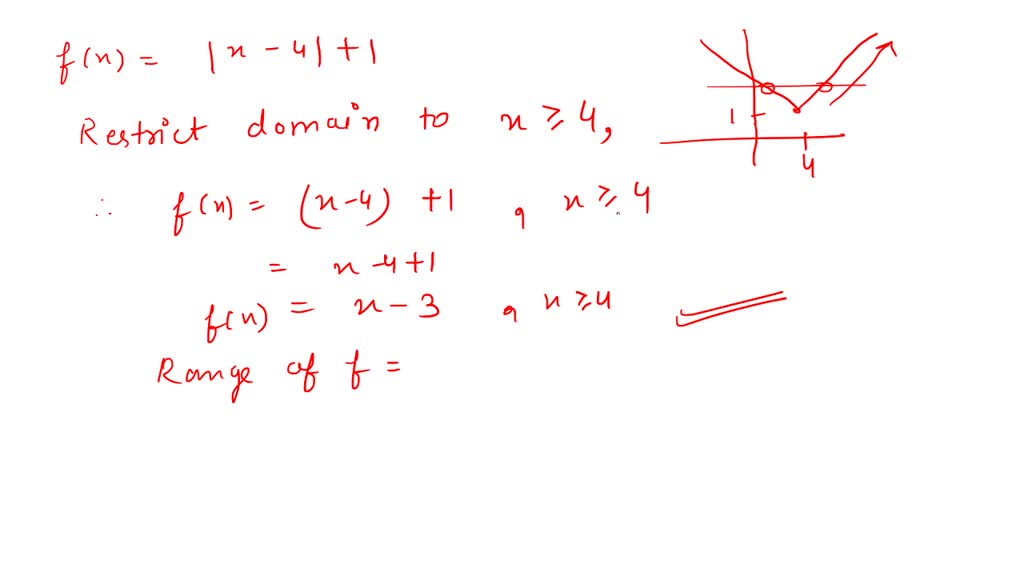 f(x) = |x - 4| + 1
Restrict domain to x ≥ 4,
∴ f(x) = (x-4) + 1 , x ≥ 4
= x - 4 + 1
f(x) = x - 3 , x ≥ 4
Range of f =
1
4